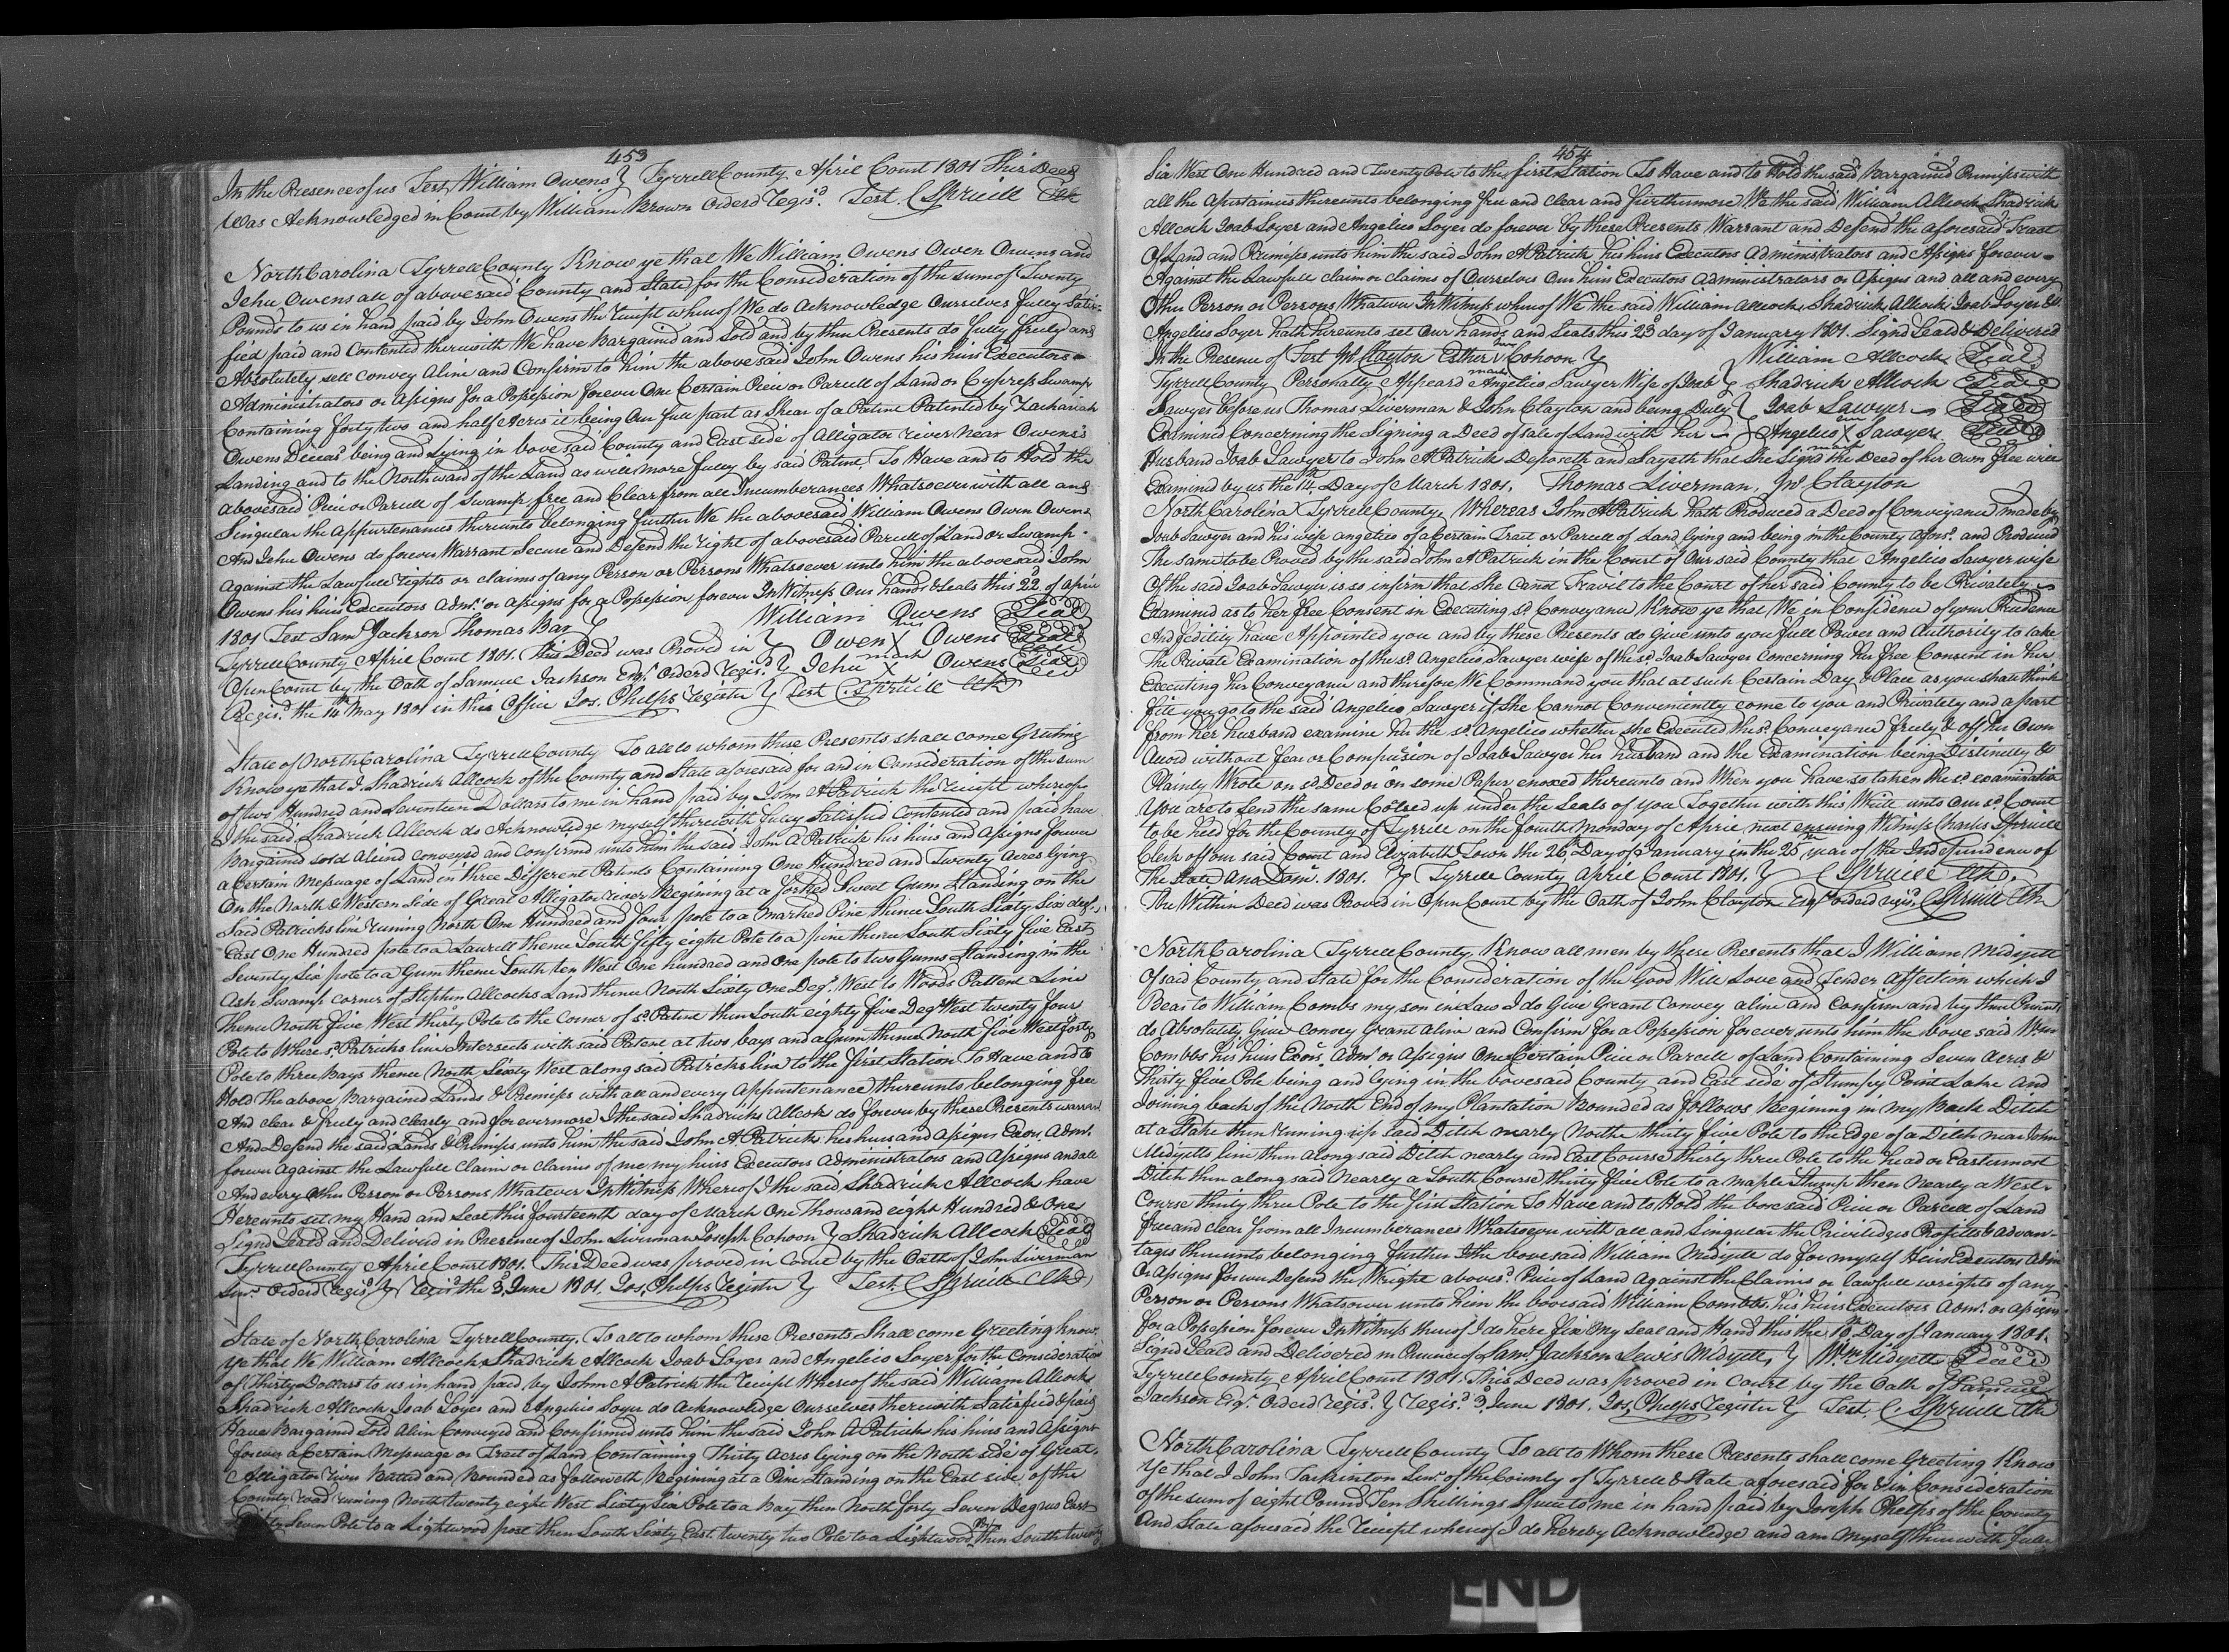 453
In the Presence of us Test William Owens } Tyrrell County April Court 1801 This Deed
Was Acknowledged in Court by William Brown Orderd Regis.d Test. C Spruill Clk
North Carolina Tyrrell County Know ye that We William Owens Owen Owens and
Jehu Owens all of abovesaid County and State for the Consideration of the sum of Twenty
Pounds to us in hand paid by John Owens the Receipt whereof We do Acknowledge Ourselves fully Satis=
fied paid and Contented therewith We have Bargained and Sold and by these Presents do fully freely and
Absolutely sell convey Aline and Confirm to him the above said John Owens his heirs Executors
Administrators or assigns for a Possession forever One Certain Piece or Parcell of Land or Cypress Swamp
Containing forty two and half Acres it being Our full part as Shear of a Patine Patented by Zachariah
Owens Deceas.d being and Lying in bove said County and East side of Alligator river Near Owens's
Landing and to the Northward of the Land as will more fully by said Patine, To Have and to Hold the
abovesaid Piece or Parcell of Swamp free and Clear from all Incumberances Whatsoever with all and
Singular the Appurtenances thereunto belonging further We the abovesaid William Owens Owen Owens
And Jehu Owens do forever Warrant Secure and Defend the right of abovesaid Parcell of Land or Swamp
against the Lawfull rights or claims of any Person or Persons Whatsoever unto him the abovesaid John
Owens his heirs Executors Adm.rs or assigns for a Possession forever In Witness Our hands & Seals this 22.d of April
1801 Test Sam.l Jackson Thomas Bar } William Owens Seal
Tyrrell County April Court 1801. This Deed was Proved in } Owen his X Owens Seal
Open Court by the Oath of Samuel Jackson Esq.r Orderd Regis.d } Jehu mark X Owens Seal
Regis.d the 14th May 1801 in this Office Jos. Phelps Register } Test C. Spruill Clk
State of North Carolina Tyrrell County To all to whom these Presents shall come Greeting
Know ye that I Shadrick Allcock of the County and State aforesaid for and in Consideration of the sum
of two Hundred and Seventeen Dollars to me in hand paid by John A Patrick the Receipt whereof
I the said Shadrick Allcock do Acknowledge myself therewith fully Satisfied Contented and paid have
Bargained sold Alined conveyed and confirmd unto him the said John A Patrick his heirs and Assigns forever
a Certain Messuage of Land in three Different Patents Containing One Hundred and Twenty Acres lying
On the North & Western Side of Great Alligator river Begining at a forked Sweet Gum Standing on the
Said Patricks line runing North One Hundred and four pole to a marked Pine thence South Sixty six deg.s
East One Hundred pole to a Laurell thence South fifty eight Pole to a pine thence South Sixty five East
Seventy Six pole to a Gum thence South ten West One hundred and One pole to two Gums Standing in the
Ash Swamp corner of Stephen Allcocks Land thence North Sixty One Deg.s West to Woods Pattent Line
Thence North five West thirty Pole to the Corner of s.d Patine then South eighty five Deg.s West twenty four
Pole to Where s.d Patricks line Intersects with said Patent at two bays and a Gum thence North five West forty
Pole to three Bays thence North Sixty West along said Patricks line to the first Station To Have and to
Hold The above Bargained Lands & Premises with all and every Appurtenance thereunto belonging free
And clear & freely and clearly and forevermore I the said Shadricks Allcock do forever by these Presents warrant
And Defend the said Lands & Premises unto him the said John A. Patricks his heirs and assigns Exors. Adm.rs
forever against the Lawfull Claim or claims of me my heirs Executors Administrators and Assigns and all
And every other Person or Persons Whatever In Witness Whereof I the said Shadrick Allcock have
Hereunto set my Hand and Seal this fourteenth day of March One Thousand eight Hundred & One
Signd Seald and Deliverd in Presence of John Liverman Joseph Cahoon } Shadrick Allcock Seal
Tyrrell County April Court 1801. This Deed was proved in Court by the Oath of John Liverman
Sen.r Orderd Regis.d } Regis.d the 3.d June 1801. Jos. Phelps Register } Test. C Spruill Clk
State of North Carolina Tyrrell County. To all to whom these Presents Shall come Greeting know
ye that We William Allcock Shadrick Allcock Joab Soyer and Angelico Soyer for the Consideration
of Thirty Dollars to us in hand paid by John A Patrick the receipt Whereof the said William Allcock
Shadrick Allcock Joab Soyer and Angelico Soyer do Acknowledge ourselves therewith Satisfied & paid
Have Bargained Sold Alin Conveyed and Confirmed unto him the said John A Patrick his heirs and Assigns
forever a Certain Messuage or Tract of Land Containing Thirty Acres lying on the North side of Great
Alligator river Butted and Bounded as followeth Begining at a Pine Standing on the East side of the
County road runing North twenty eight West Sixty Six Pole to a Bay then North forty Seven Degrees East
Seven Pole to a Lightwood post then South Sixty East. twenty two Pole to a Lightwood Post then South twenty
454
Six West One Hundred and Twenty Pole to the first Station To Have and to Hold the said Bargaind Premises with
all the Apurtainces thereunto belonging free and clear and furthermore We the said William Allcock Shadrick
Allcock Joab Soyer and Angelico Soyer do forever by these Presents Warrant and Defend the aforesaid Tract
Of Land and Premises unto him the said John A Patrick his heirs Executors Administrators and Assigns forever
Against the Lawfull claim or claims of Ourselves Our heirs Executors Administrators or Assigns and all and every
Other Person or Persons Whatever In Witness whereof We the said William Allcock, Shadrick Allcock Joab Soyer &
Angelico Soyer hath hereunto set Our hands and Seals this 23 day of January 1801. Signd Seald & Delivered
In the Presence of Test Jn.o Clayton Esther her X mark Cohoon } William Allcock Seal
Tyrrell County Personally Appeard Angelico Sawyer Wife of Joab } Shadrick Allcock Seal
Sawyer before us Thomas Liverman & John Clayton and being Duly } Joab Sawyer Seal
Examined Concerning the Signing a Deed of sale of Land with her } Angelico her X mark Sawyer Seal
Husband Joab Sawyer to John A Patrick Deposeth and Sayeth that She Signd the Deed of her Own free will
Examind by us the 14th Day of March 1801. Thomas Liverman, Jn.o Clayton
North Carolina Tyrrell County, Whereas John A Patrick hath Produced a Deed of Conveyance made by
Joab Sawyer and his wife angelico of a Certain Tract or Parcell of Land lying and being in the County afors.d and Produced
The same to be Proved by the said John A Patrick in the Court of Our said County that Angelico Sawyer wife
Of the said Joab Sawyer is so infirm that She Canot Travil to the Court of her said County to be Privately
Examined as to her free Consent in Executing s.d Conveyance Know ye that We in Confidence of your Prudence
And fedility have Appointed you and by these Presents do give unto you full Power and Authority to take
The Private Examination of the s.d Angelico Sawyer wife of the s.d Joab Sawyer concerning her free Consent in her
Executing her Conveyance and therefore We Command you that at such Certain Day & Place as you shall think
fitt you go to the said Angelico Sawyer if She Cannot Conveniently come to you and Privately and apart
from her husband examine her the s.d Angelico whether she Executed the s.d Conveyance freely & off her Own
Accord without fear or Compulsion of Joab Sawyer her husband and the Examination being Distinctly &
Plainly Wrote on s.d Deed or on some Paper enoxed thereunto and When you have so taken the s.d examination
You are to Send the same Colsed up under the Seals of you Together with this Writt unto Our s.d Court
to be held for the County of Tyrrell on the fourth Monday of April next ensuing Witness Charles Spruill
Clerk off our said Court and Elizabeth Town the 26th Day of January in the 25th year of the Independence of
The State Ano Dom. 1801. } Tyrrell County April Court 1801. } C Spruill Clk.
The Within Deed was Proved in Open Court by the Oath of John Clayton Esq.r orderd regis.d C Spruill Clk
North Carolina Tyrrell County, Know all men by these Presents that I William Midyett
Of said County and State for the Consideration of the Good Will Love and Tender Affection which I
Bear to William Combs my son in Law I do Give Grant Convey aline and Confirm and by these Presents
do Absolutely Give Convey Grant aline and Confirm for a Possession forever unto him the bove said Wm
Combbs his heirs Exors Adm.rs or Assigns One Certain Piece or Parcell of Land Containing Seven Acres &
Thirty five Pole being and lying in the bovesaid County and East side of Stumpy Point Lake and
Joining back of the North End of my Plantation Bounded as follows Begining in my Back Ditch
at a Stake then runing up said Ditch nearly Northe thirty five Pole to the Edge of a Ditch near John
Midyetts line then along said Ditch nearly and East Course thirty three Pole to the head or Eastermost
Ditch then along said Nearly a South Course thirty five Pole to a maple Stump then Nearly a West
Course thirty three Pole to the first Station To Have and to Hold the bove said Piece or Parcell of Land
free and clear from all Incumberances Whatsoever with all and Singular the Priviledges Profitts & advan=
tages thereunto belonging further I the bovesaid William Midyett do for myself Heirs Executors Adm
Or Assigns forever Defend the Wright aboves.d Piece of Land against the Claims or lawfull wrights of any
Person or Persons Whatsoever unto him the bovesaid William Combbs his heirs Executors Adm.rs or assigns
for a Possession forever In Witness thereof I do here fix My Seal and Hand this the 18th Day of January 1801.
Signd Seald and Delivered in Presence of Sam.l Jackson Lewis Midyett, } Wm Midyett Seal
Tyrrell County April Court 1801. This Deed was proved in Court by the Oath of Samuel
Jackson Esq.r Orderd Regis.d } Regis.d 3.d June 1801. Jos. Phelps Register } Test. C Spruill Clk
North Carolina Tyrrell County To all to Whom these Presents shall come Greeting Know
Ye that I John Tarkinton Sen.r of the County of Tyrrell & State aforesaid for & in Consideration
of the sum of eight Pound Ten Shillings Specie to me in hand paid by Joseph Phelps of the County
And State aforesaid the Receipt whereof I do hereby Acknowledge and am Myself therewith fully
END